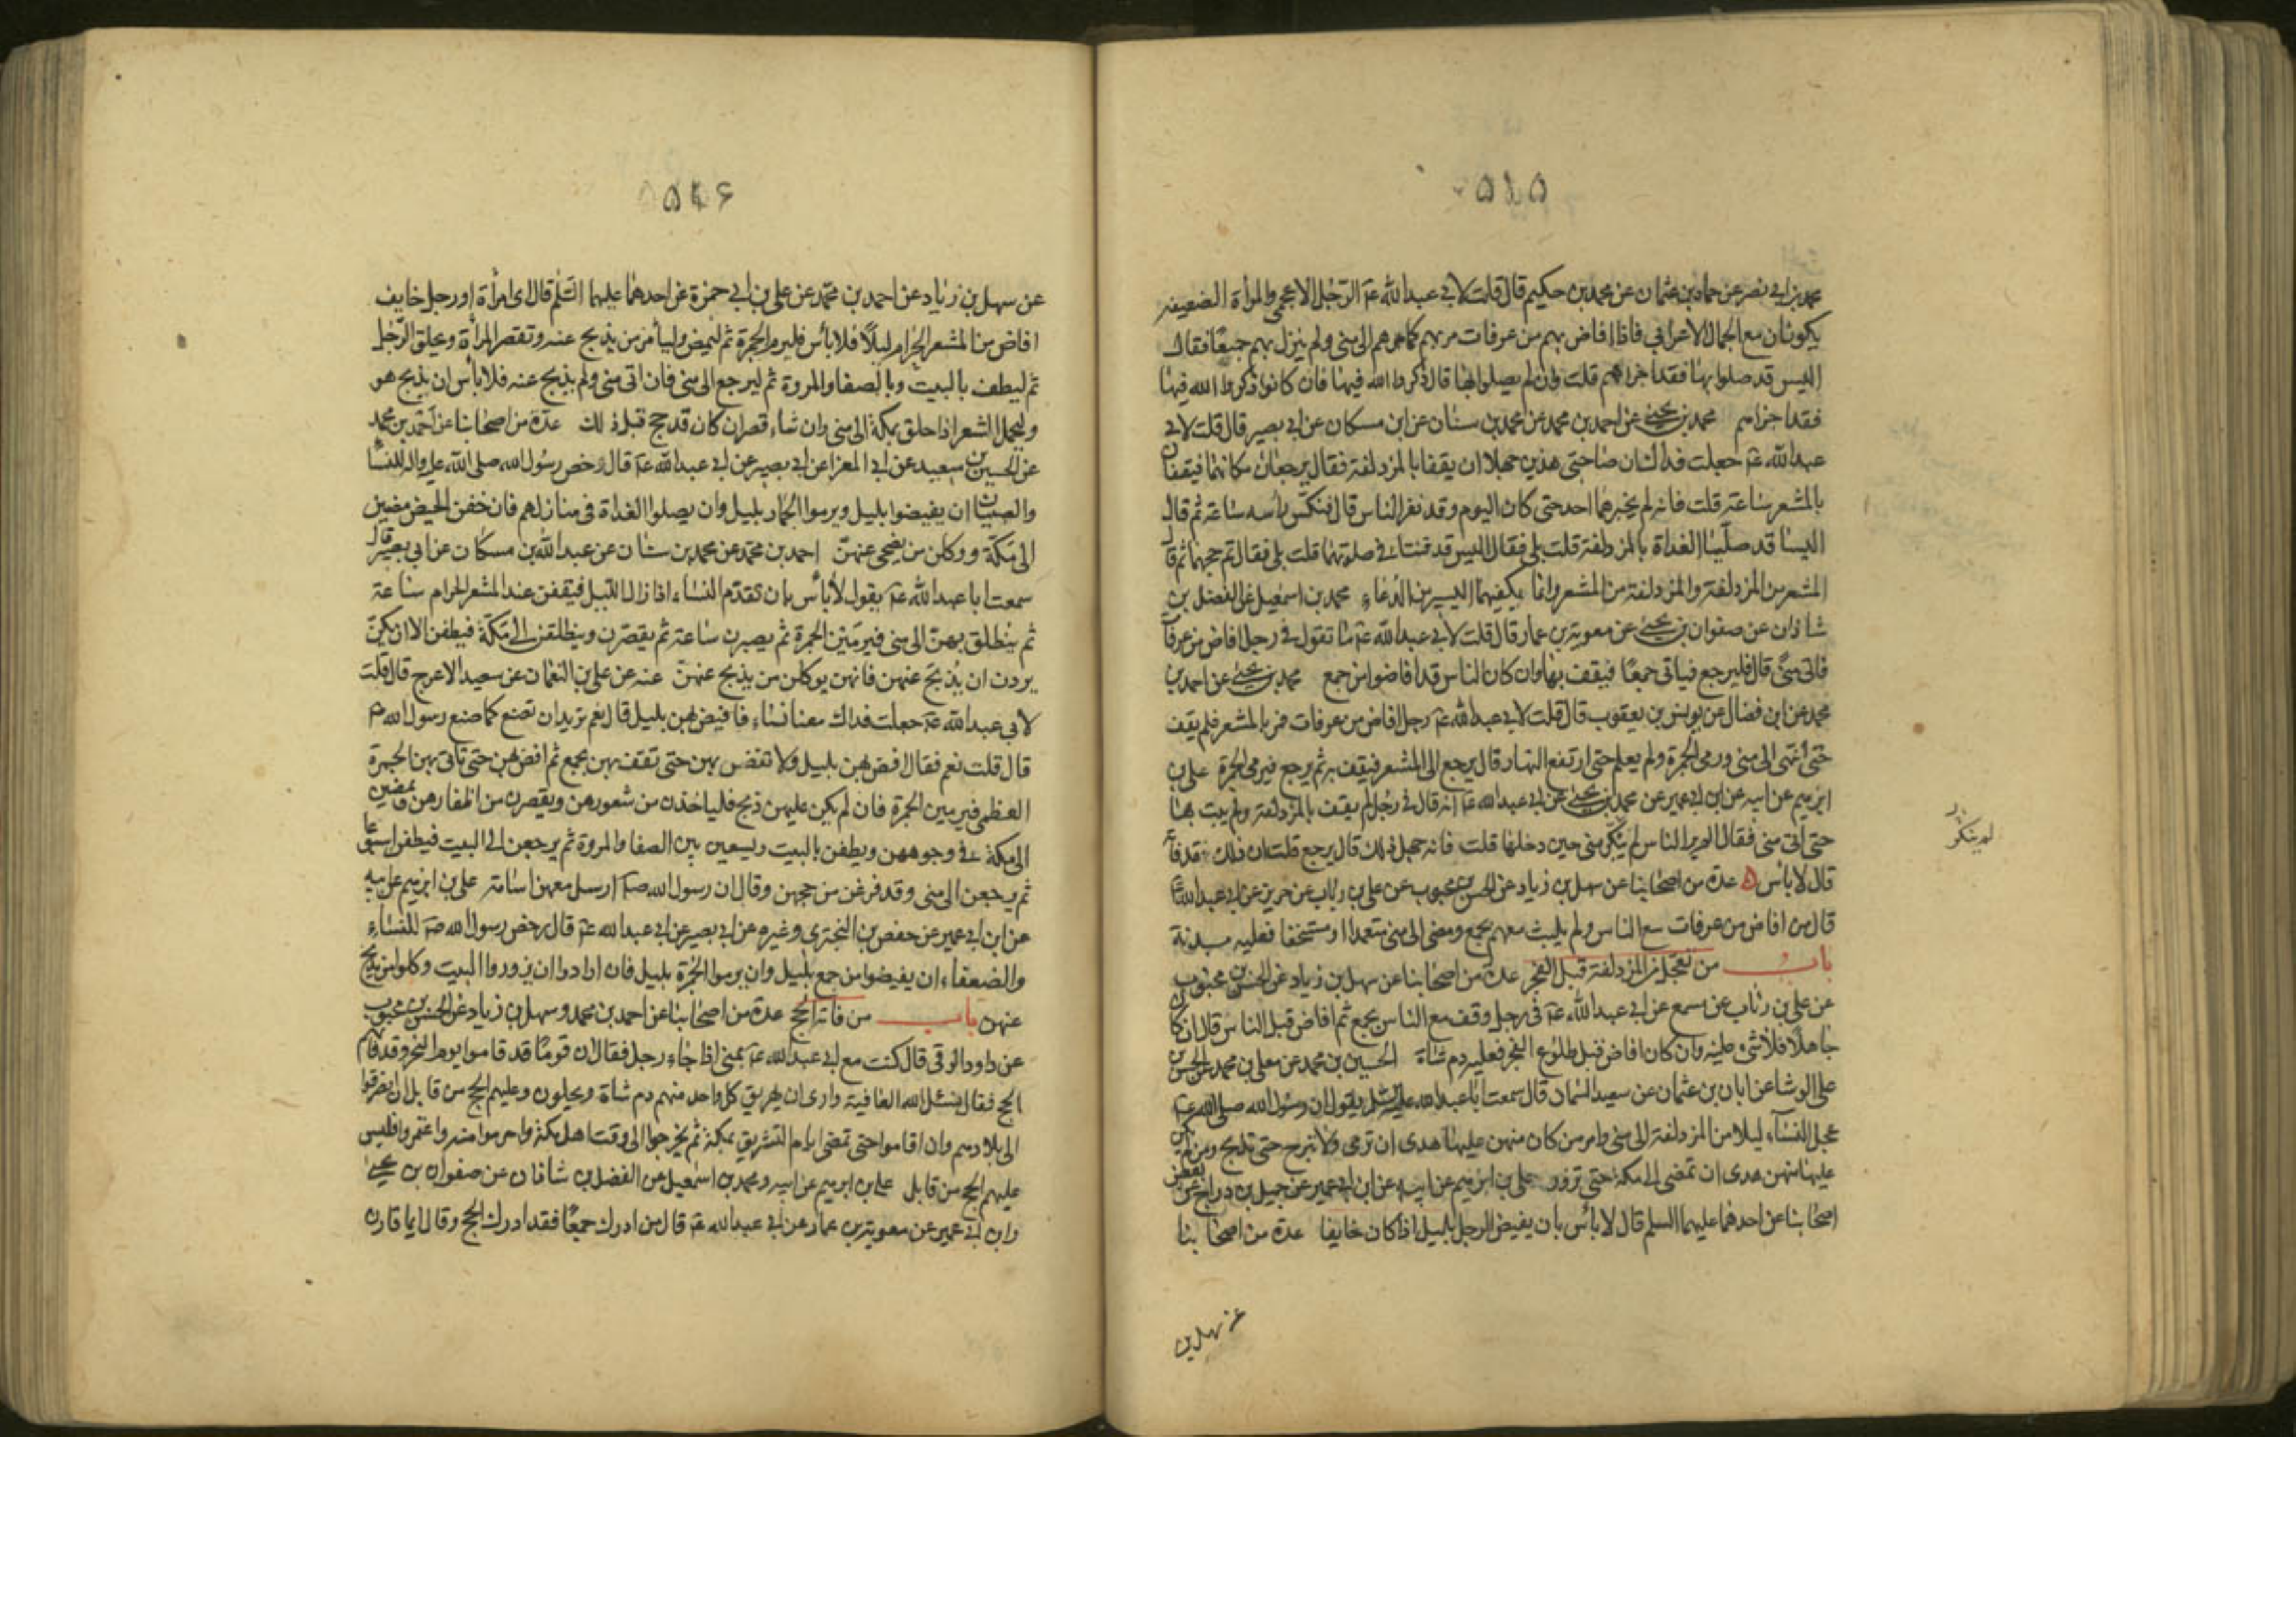 ۵۱۵
محمد بن ابي نصر عن حماد بن عثمان عن محمد بن حكيم قال قلت لابي عبد الله عم الرجل الاعجمي والمرأة الضعيفة
يكونان مع الجمال الاعرابي فاذا افاض بهم من عرفات مر بهم كما مر هم الى منى ولم ينزل بهم جمعًا فقال
اليس قد صلوا بها فقد اجزاهم قلت وان لم يصلوا بها قال ذكروا الله فيها فان كانوا ذكروا الله فيها
فقد اجزاهم محمد بن يحيى عن احمد بن محمد عن محمد بن سنان عن ابن مسكان عن ابي بصير قال قلت لابي
عبد الله عم جعلت فداك ان صاحبي هذين جهلا ان يقفا بالمزدلفة فقال يرجعان مكانهما فيقفان
بالمشعر ساعة قلت فانه لم يخبرهما احد حتى كان اليوم وقد نفر الناس قال فنكس رأسه ساعة ثم قال
اليسا قد صليا الغداة بالمزدلفة قلت بلى فقال اليس قد قنتا في صلوتهما قلت بلى فقال تم حجهما ثم قال
المشعر من المزدلفة والمزدلفة من المشعر وانما يكفيهما اليسير من الدعاء محمد بن اسمعيل عن الفضل بن
شاذان عن صفوان بن يحيى عن معوية بن عمار قال قلت لابي عبد الله عم ما تقول في رجل افاض من عرفات
فاتى منى قال فليرجع فياتي جمعًا فيقف بها وان كان الناس قد افاضوا من جمع محمد بن يحيى عن احمد بن
محمد عن ابن فضال عن يونس بن يعقوب قال قلت لابي عبد الله عم رجل افاض من عرفات فمر بالمشعر فلم يقف
حتى انتهى الى منى ورمى الجمرة ولم يعلم حتى ارتفع النهار قال يرجع الى المشعر فيقف به ثم يرجع فيرمي الجمرة علي بن
ابرهيم عن ابيه عن ابن ابي عمير عن محمد بن يحيى عن ابي عبد الله عم انه قال في رجل لم يقف بالمزدلفة ولم يبت بها
حتى اتى منى فقال الم ير الناس لم ينكر منى حين دخلها قلت فانه جهل ذلك قال يرجع قلت ان ذلك قد فاته
لم ينكر
قال لا بأس عدة من اصحابنا عن سهل بن زياد عن الحسن بن محبوب عن علي بن رئاب عن حريز عن ابي عبد الله
قال من افاض من عرفات مع الناس ولم يلبث معهم بجمع ومضى الى منى متعمدا او مستخفا فعليه بدنة
باب من تعجل من المزدلفة قبل الفجر عدة من اصحابنا عن سهل بن زياد عن الحسن بن محبوب
عن علي بن رئاب عن مسمع عن ابي عبد الله عم في رجل وقف مع الناس بجمع ثم افاض قبل الناس قال ان كان
جاهلًا فلا شيء عليه وان كان افاض قبل طلوع الفجر فعليه دم شاة الحسين بن محمد عن معلى بن محمد عن الحسن بن
علي الوشا عن ابان بن عثمان عن سعيد السمان قال سمعت ابا عبد الله عليه السلم يقول ان رسول الله صلى الله عليه
عجل النساء ليلا من المزدلفة الى منى وامر من كان منهن عليها هدى ان ترمي ولا تبرح حتى تذبح ومن لم يكن
عليها منهن هدى ان تمضي الى مكة حتى تزور علي بن ابرهيم عن ابيه عن ابن ابي عمير عن جميل بن دراج عن بعض
اصحابنا عن احدهما عليهما السلم قال لا بأس بان يفيض الرجل بليل اذا كان خايفا عدة من اصحابنا
عن سهل بن
عن سهل بن زياد عن احمد بن محمد عن علي بن ابي حمزة عن احدهما عليهما السلم قال اي امرأة او رجل خايف
افاض من المشعر الحرام ليلًا فلا بأس فليرم الجمرة ثم ليمض وليأمر من يذبح عنه وتقصر المرأة ويحلق الرجل
ثم ليطف بالبيت وبالصفا والمروة ثم ليرجع الى منى فان اتى منى ولم يذبح عنه فلا بأس ان يذبح هو
وليحمل الشعر اذا حلق بمكة الى منى وان شاء قصر ان كان قد حج قبل ذلك عدة من اصحابنا عن احمد بن محمد
عن الحسين بن سعيد عن ابي المعزا عن ابي بصير عن ابي عبد الله عم قال رخص رسول الله صلى الله عليه واله للنساء
والصبيان ان يفيضوا بليل ويرموا الجمار بليل وان يصلوا الغداة في منازلهم فان خفن الحيض مضين
الى مكة ووكلن من يضحي عنهن احمد بن محمد عن محمد بن سنان عن عبد الله بن مسكان عن ابي بصير قال
سمعت ابا عبد الله عم يقول لا بأس بان تقدم النساء اذا زال الليل فيقفن عند المشعر الحرام ساعة
ثم ينطلق بهن الى منى فيرمين الجمرة ثم يصبرن ساعة ثم يقصرن وينطلقن الى مكة فيطفن الا ان يكن
يردن ان يذبح عنهن فانهن يوكلن من يذبح عنهن عنه عن علي بن النعمان عن سعيد الاعرج قال قلت
لابي عبد الله عم جعلت فداك معنا نساء فافيض بهن بليل قال نعم تريد ان تصنع كما صنع رسول الله ص
قال قلت نعم فقال افض بهن بليل ولا تفض بهن حتى تقف بهن بجمع ثم افض بهن حتى تاتي بهن الجمرة
العظمى فيرمين الجمرة فان لم يكن عليهن ذبح فلياخذن من شعورهن ويقصرن من اظفارهن ويمضين
الى مكة في وجوههن ويطفن بالبيت ويسعين بين الصفا والمروة ثم يرجعن الى البيت فيطفن اسبوعا
ثم يرجعن الى منى وقد فرغن من حجهن وقال ان رسول الله ص ارسل معهن اسامة علي بن ابرهيم عن ابيه
عن ابن ابي عمير عن حفص بن البختري وغيره عن ابي بصير عن ابي عبد الله عم قال رخص رسول الله ص للنساء
والضعفاء ان يفيضوا من جمع بليل وان يرموا الجمرة بليل فان ارادوا ان يزوروا البيت وكلوا من يذبح
عنهن باب من فاته الحج عدة من اصحابنا عن احمد بن محمد وسهل بن زياد عن الحسن بن محبوب
عن داود الرقي قال كنت مع ابي عبد الله عم بمنى اذا جاء رجل فقال ان قومًا قد قاموا يوم النحر وقد فاتهم
الحج فقال نسئل الله العافية وارى ان يهريق كل واحد منهم دم شاة ويحلون وعليهم الحج من قابل ان انصرفوا
الى بلادهم وان اقاموا حتى تمضي ايام التشريق بمكة ثم يخرجوا الى وقت اهل مكة واحرموا منه واعتمروا فليس
عليهم الحج من قابل علي بن ابرهيم عن ابيه ومحمد بن اسمعيل عن الفضل بن شاذان عن صفوان بن يحيى
وابن ابي عمير عن معوية بن عمار عن ابي عبد الله عم قال من ادرك جمعًا فقد ادرك الحج وقال ايما قارن